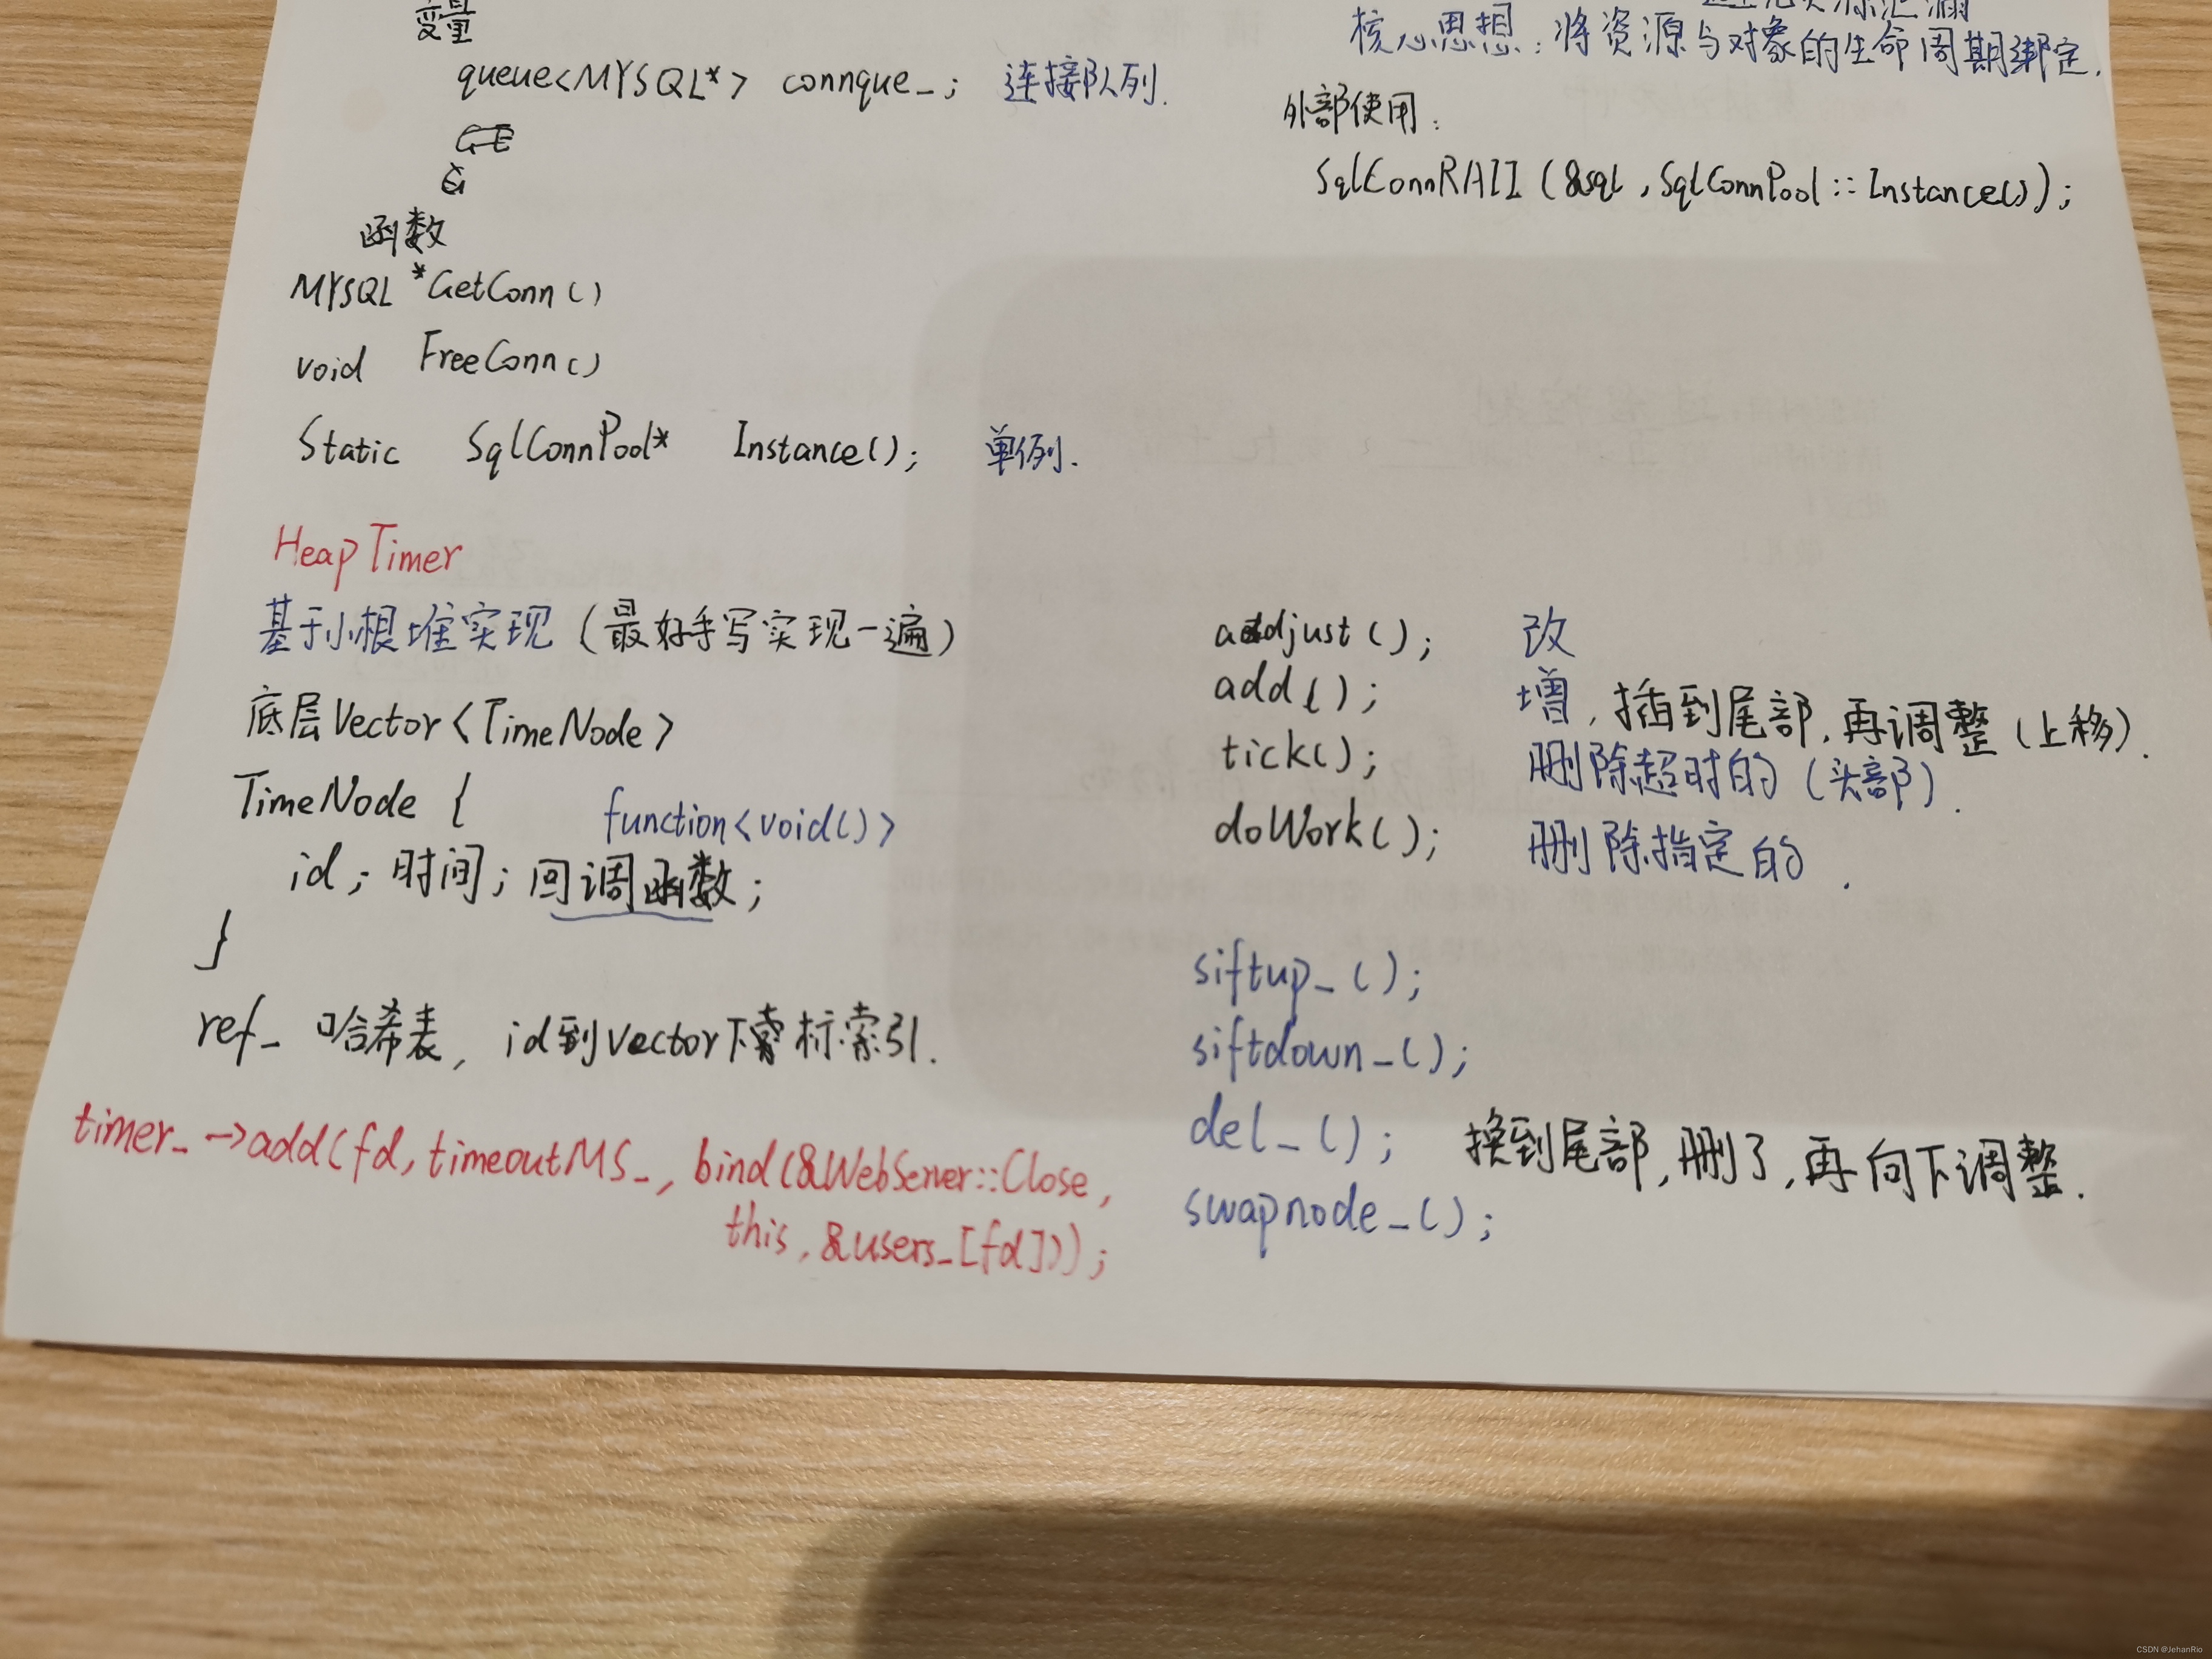 变量
queue<MYSQL*> connque_; 连接队列.
函数
MYSQL *GetConn()
void FreeConn()
Static SqlConnPool* Instance(); 单例.
核心思想: 将资源与对象的生命周期绑定.
外部使用:
SqlConnRAII (&sql, SqlConnPool::Instance());
HeapTimer
基于小根堆实现 (最好手写实现一遍)
底层Vector<TimeNode>
TimeNode { function<void()>
id; 时间; 回调函数;
}
ref_ 哈希表, id到vector下标索引.
timer_->add(fd, timeoutMS_, bind(&WebServer::Close,
this, &users_[fd]));
adjust(); 改
add(); 增, 插到尾部, 再调整 (上移).
tick(); 删除超时的 (头部).
doWork(); 删除指定的.
siftup_();
siftdown_();
del_(); 换到尾部, 删了, 再向下调整.
swapnode_();
CSDN @JehanRio